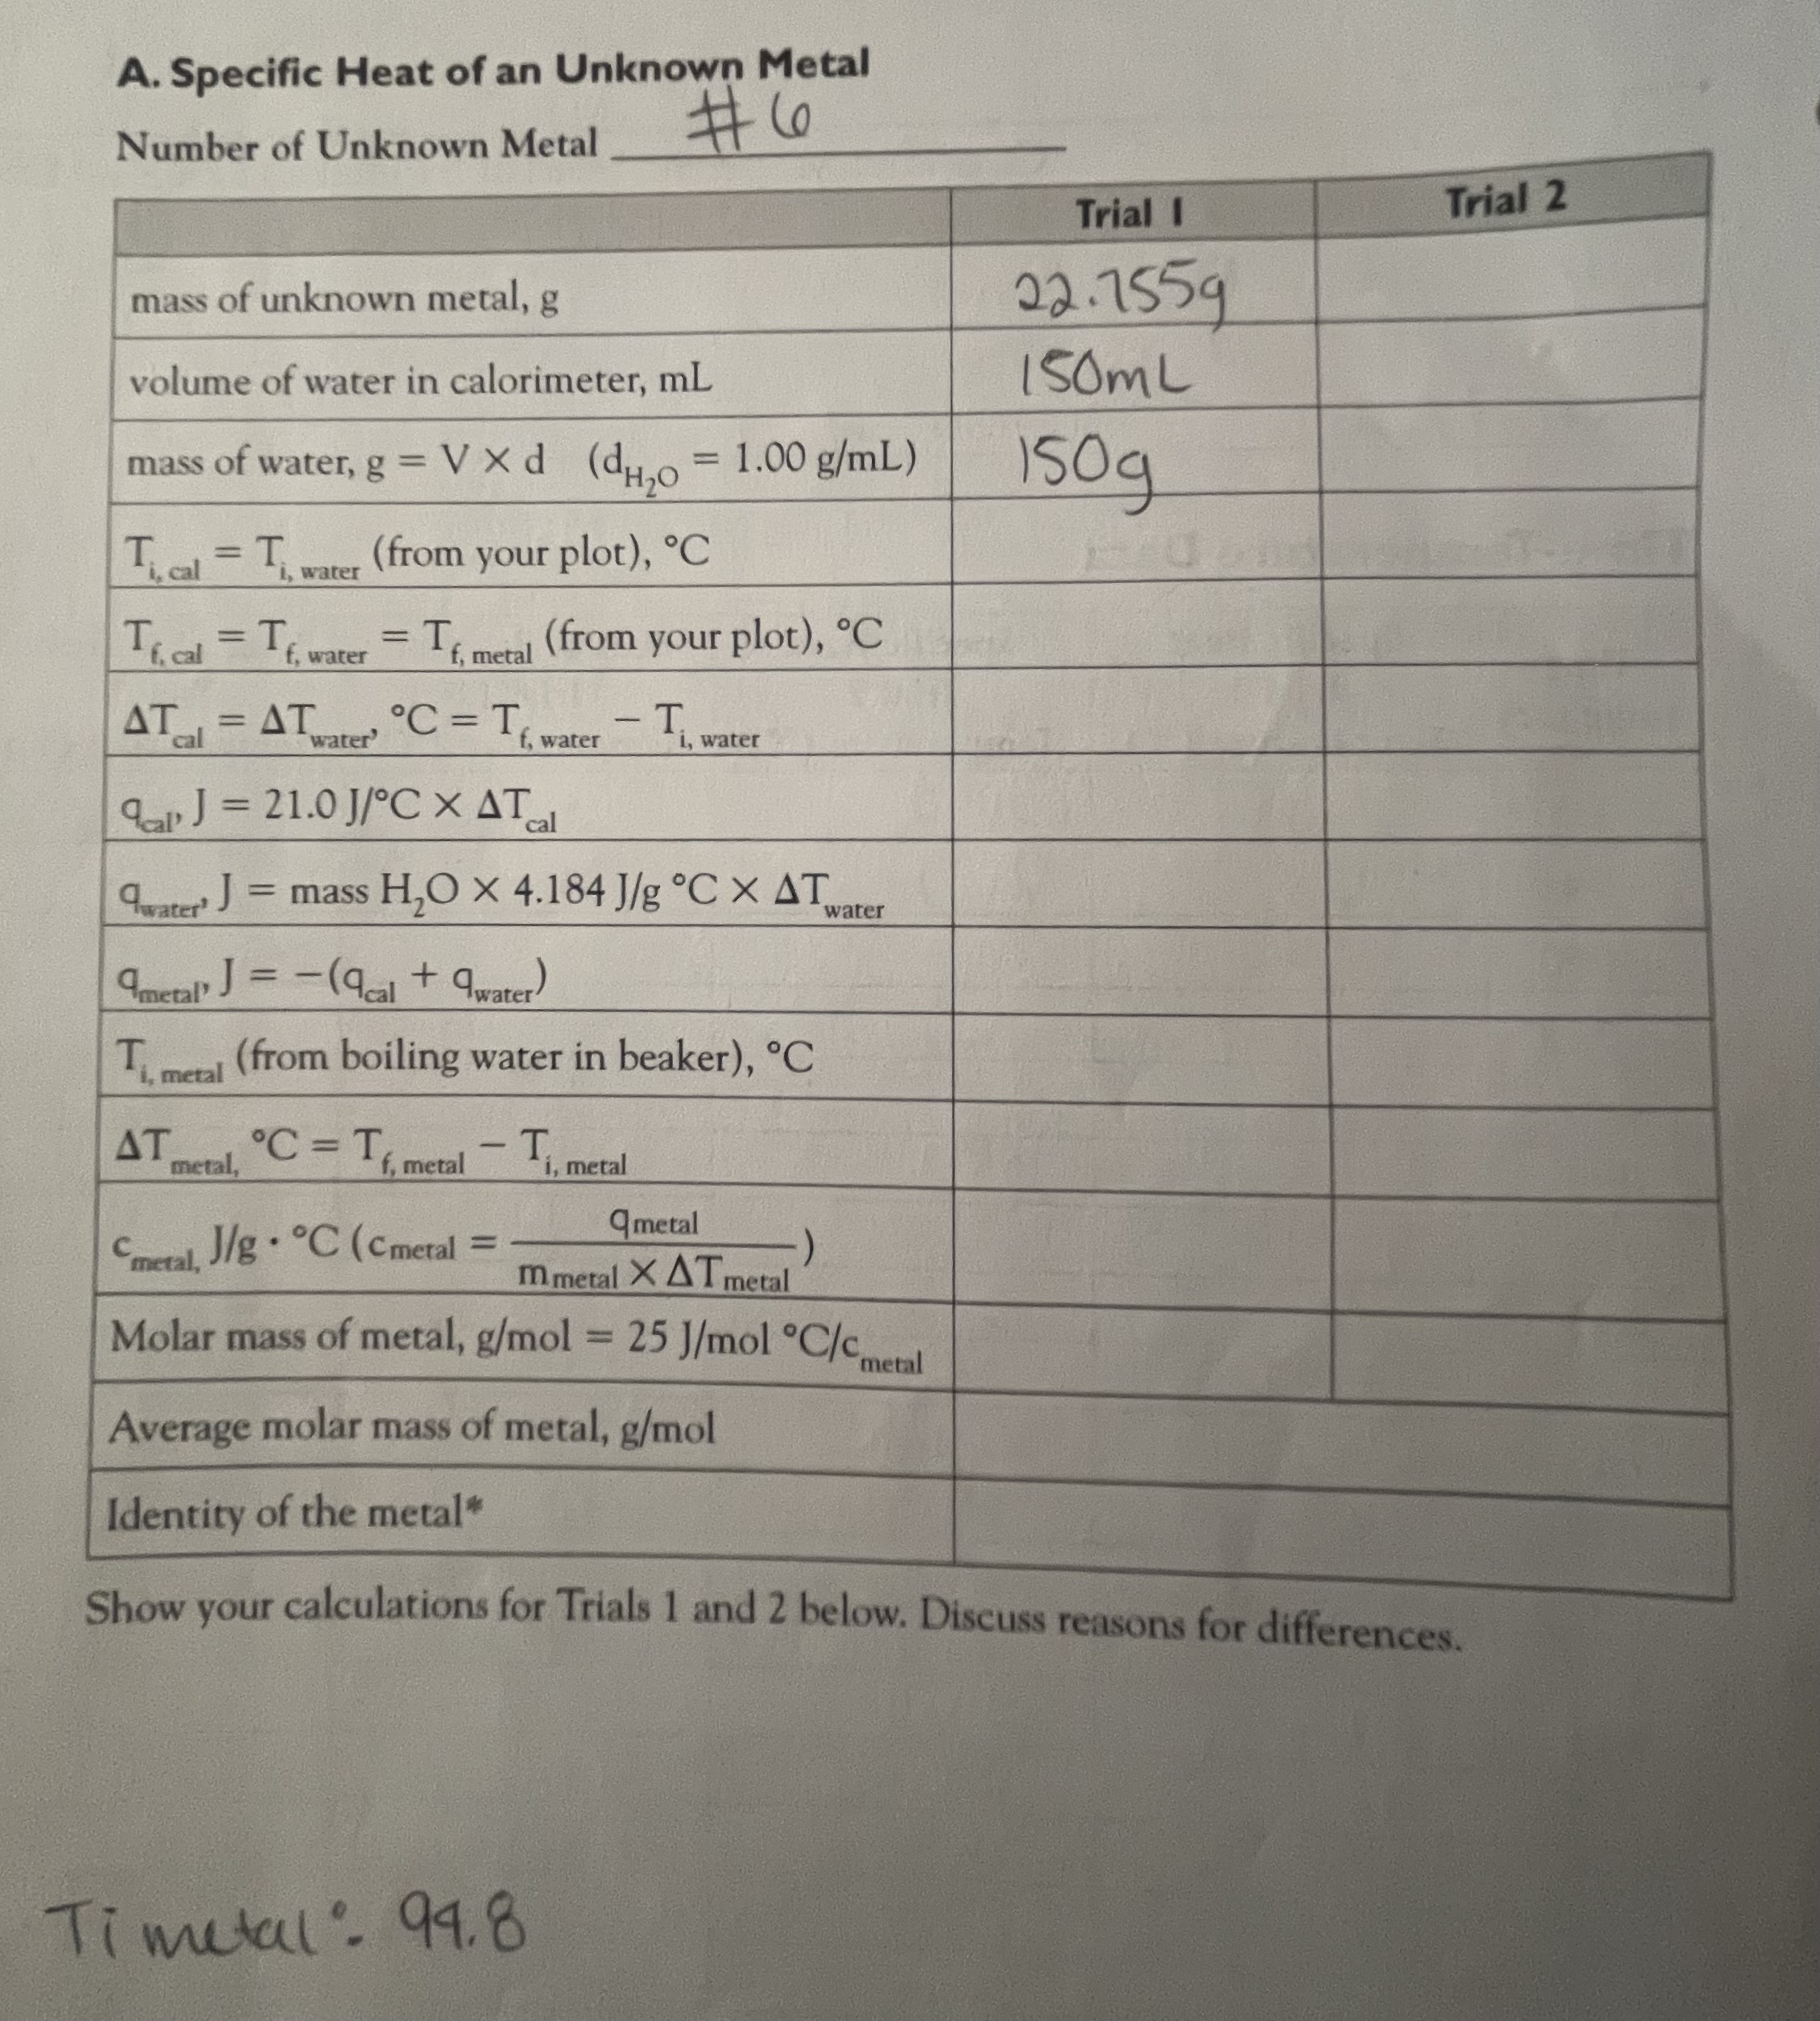 A. Specific Heat of an Unknown Metal
Number of Unknown Metal #6
Trial 1 Trial 2
mass of unknown metal, g 22.755g
volume of water in calorimeter, mL 150mL
mass of water, g = V × d (d_H₂O = 1.00 g/mL) 150g
T_i, cal = T_i, water (from your plot), °C
T_f, cal = T_f, water = T_f, metal (from your plot), °C
ΔT_cal = ΔT_water, °C = T_f, water − T_i, water
q_cal, J = 21.0 J/°C × ΔT_cal
q_water, J = mass H₂O × 4.184 J/g °C × ΔT_water
q_metal, J = −(q_cal + q_water)
T_i, metal (from boiling water in beaker), °C
ΔT_metal, °C = T_f, metal − T_i, metal
c_metal, J/g · °C (c_metal = q_metal / m_metal × ΔT_metal)
Molar mass of metal, g/mol = 25 J/mol °C/c_metal
Average molar mass of metal, g/mol
Identity of the metal*
Show your calculations for Trials 1 and 2 below. Discuss reasons for differences.
Ti metal: